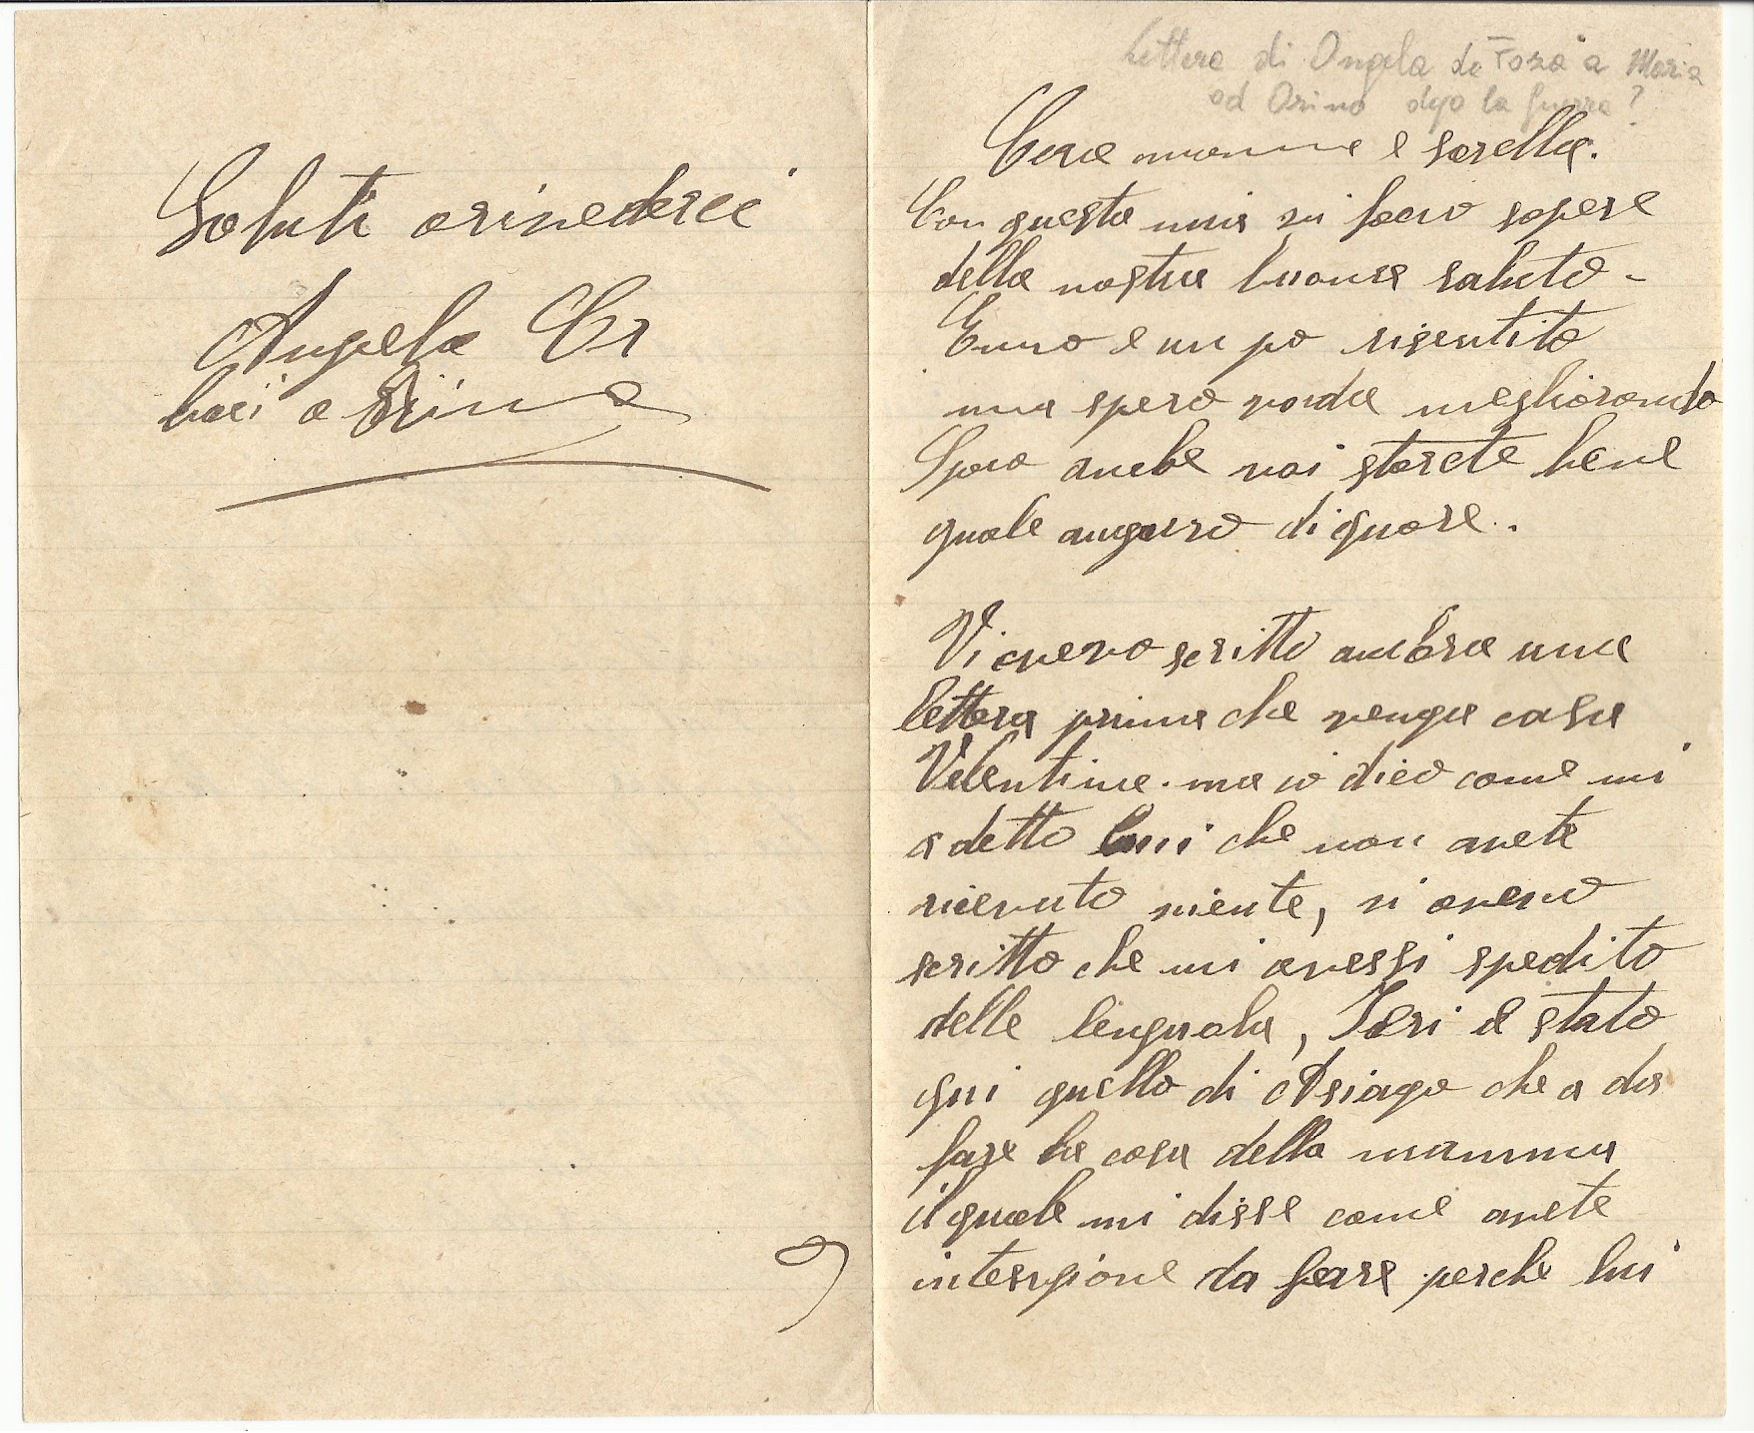 Lettera di Angela da Foza a Maria
ad Orino dopo la guerra?
Cara mamma e sorella.
Con questa mia vi facio sapere
della nostra buona saluto -
e un po risentito
ma spero vonda megliorando
Spero anche voi starete bene
quale auguro di quore.
Vi avevo scritto ancora una
lettera prima che venga casa
Valentino. ma io dico come mi
a detto lui che non avete
ricevuto niente, vi avevo
scritto che mi avessi spedito
delle lenzuola, Ieri e stato
qui quello di Asiago che a da
fare la casa della mamma
il quale mi disse come avete
intenzione da fare perche lui
Saluti arivederci
Angela Cr
baci a